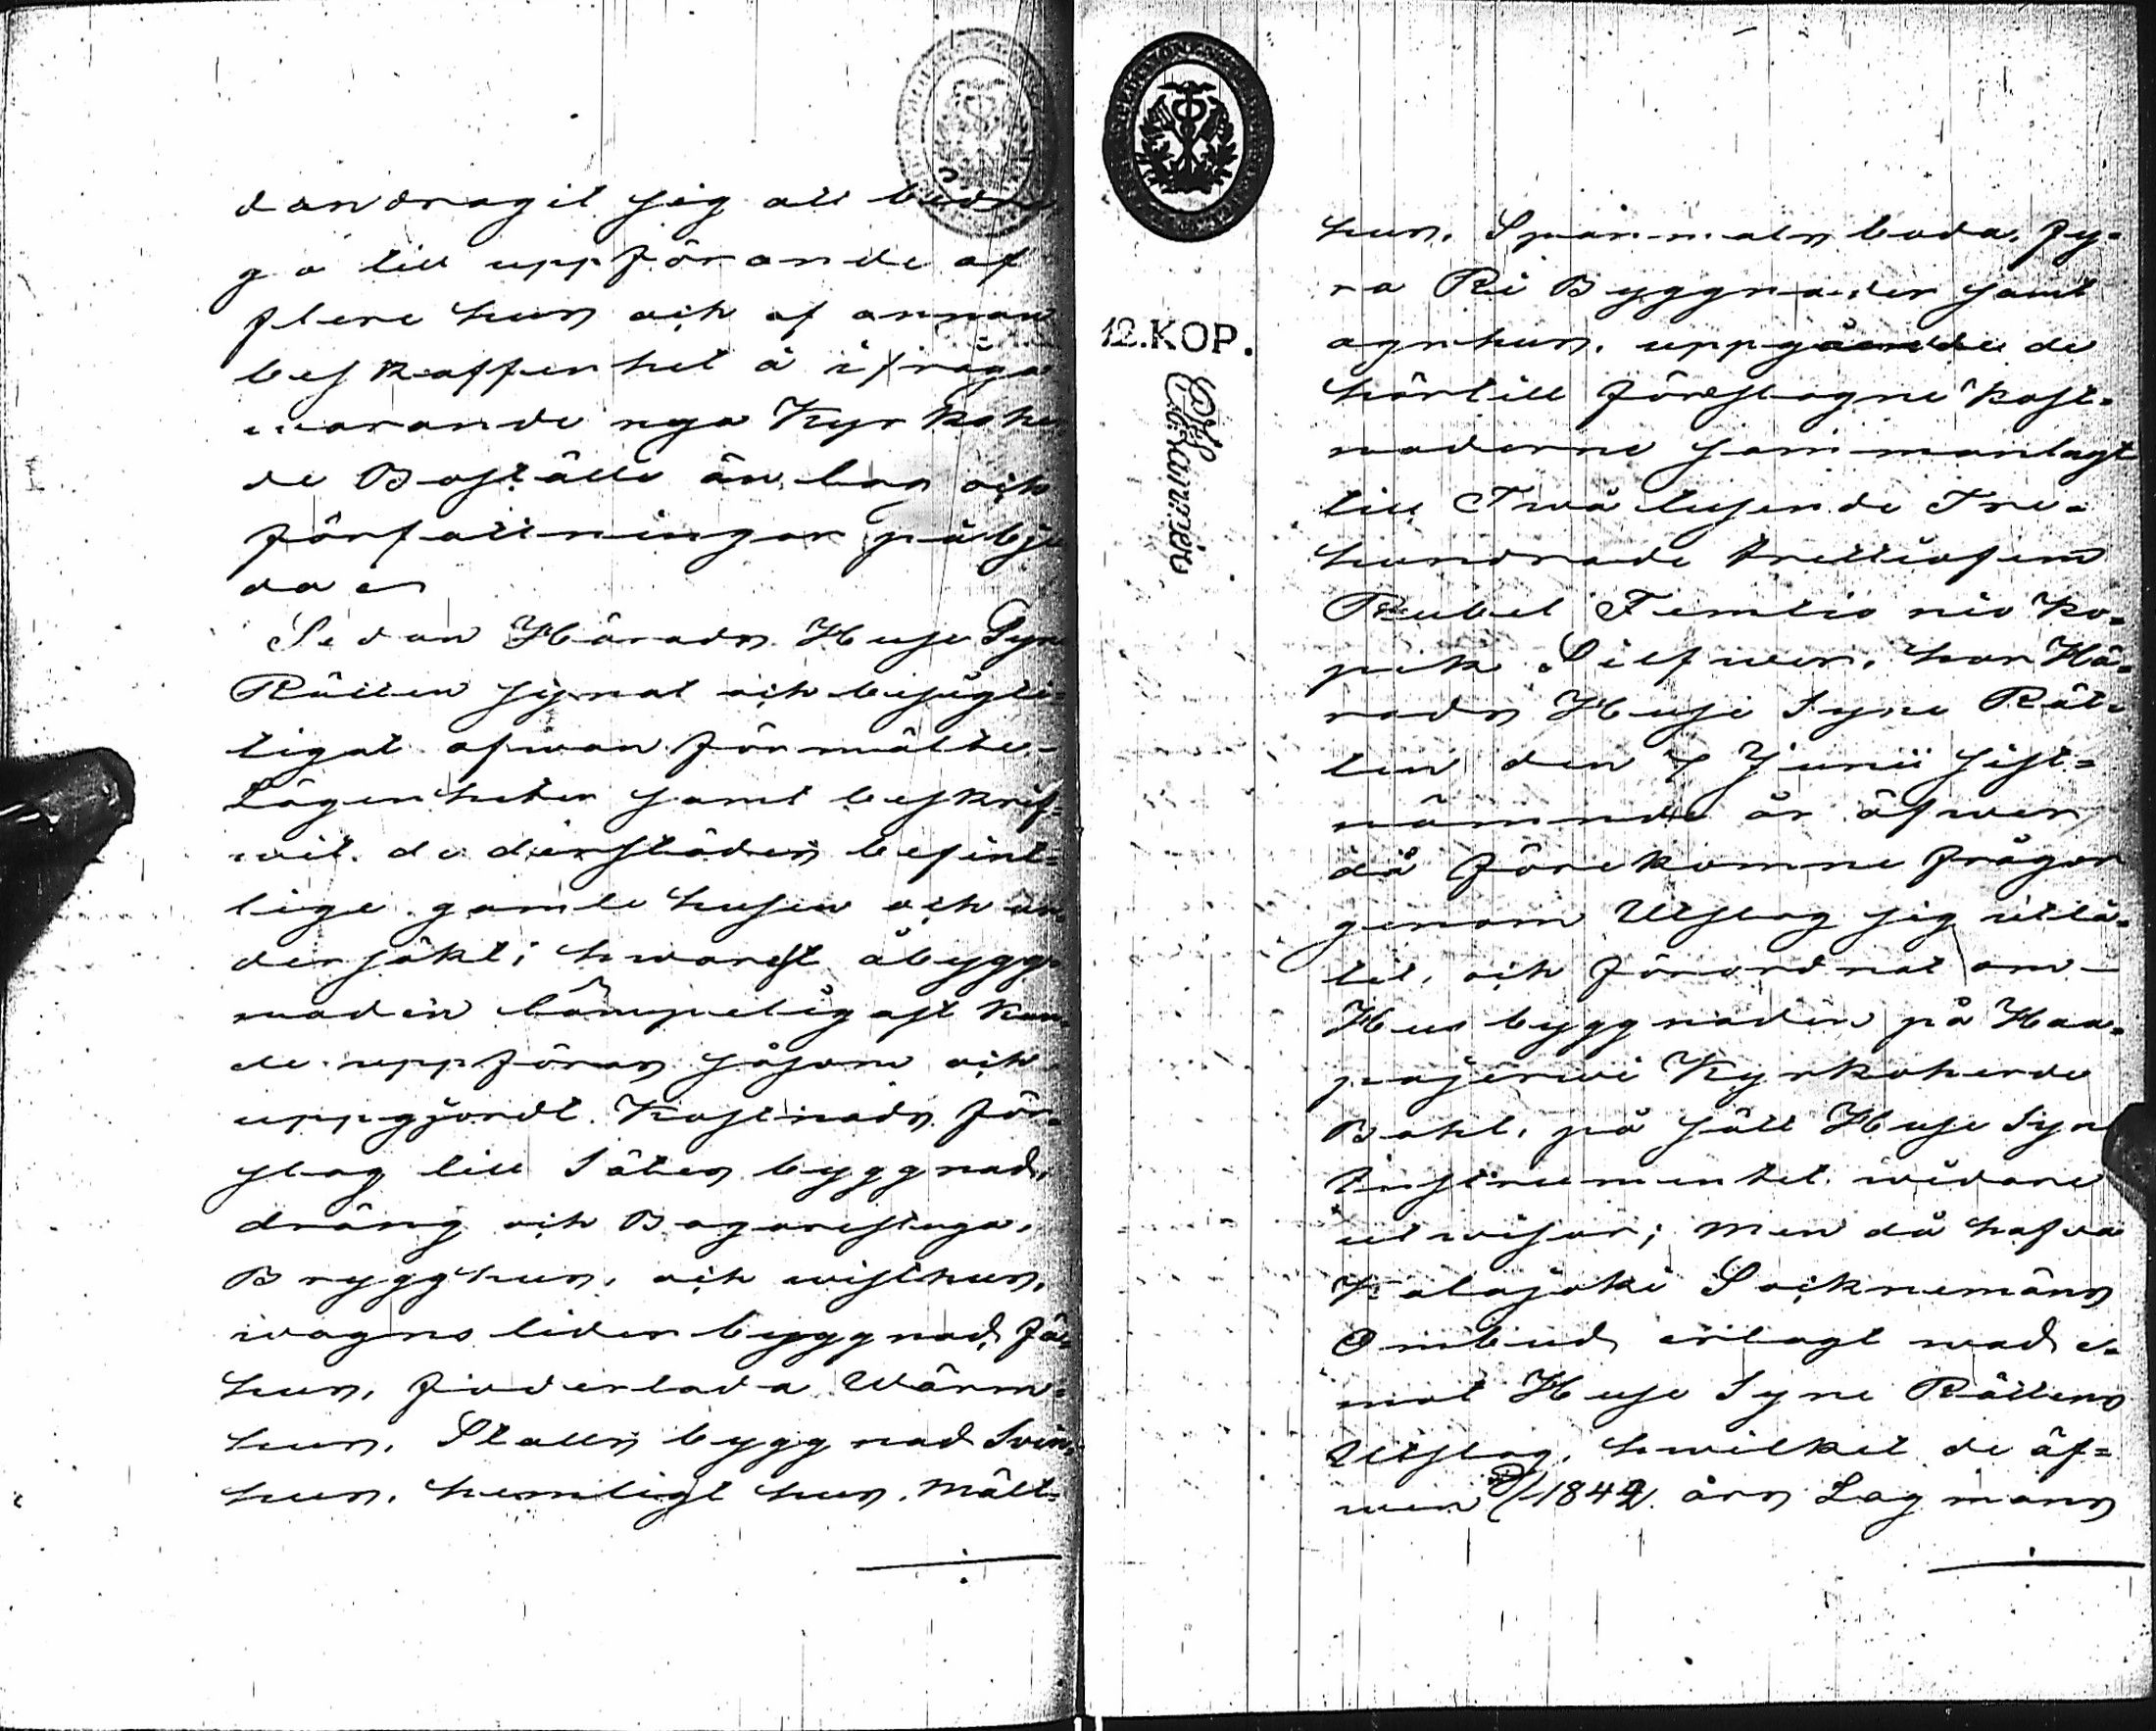 dandragit sig att bidra
ga till uppförande af
flere hus och af annan
beskaffenhet å ifråga
warande nya Kyrkohe
de Boställe än lag och
författningar påbju
da
Sedan Härads Huse Syne
Rätten synat och besigti-
tigat ofwan förmälte
Lägenheter samt beskrif-
wit de derstädes befint-
lige gamle husen och un
dersökt; hwarest åbygg-
naden lämpeligast kun-
de uppföras såsom och
uppgjordt Kostnads för-
slag till Sätes byggnad,
dräng och Bagarestuga,
Brygghus, och wisthus,
wagns lider byggnad, fä-
hus, foderlada Wärm-
hus, Stalls byggnad Svin-
hus, hemligt hus, Mält-
12.KOP.
hus, Spanmåls boda, fy-
ra Ri Byggnader samt
agnhus, uppgåendde de
härtill föreslagne kost-
naderne sammanlagt
till Twå tusende Tre-
hundrade trettiofem
Rubel Femtio nio ko-
pek Silfwer, har Hä-
rads Huse Syne Rät-
ten den 7 Junii sist-
nämnde år öfwer
då förekomne frågor
genom Utslag sig utlå-
tit, och förordnat om
Husbyggnaden på Haa-
pajerwi Kyrkoherde
Bohl, på sätt Huse Syne
Instrumentet widare
utwisar; Men då hafva
Kalajoki Sockemäns
Ombud erlagt wad e-
mot Huse Syne Rättens
Utslag, hwilket de äf-
wen 1842 års Lagmans